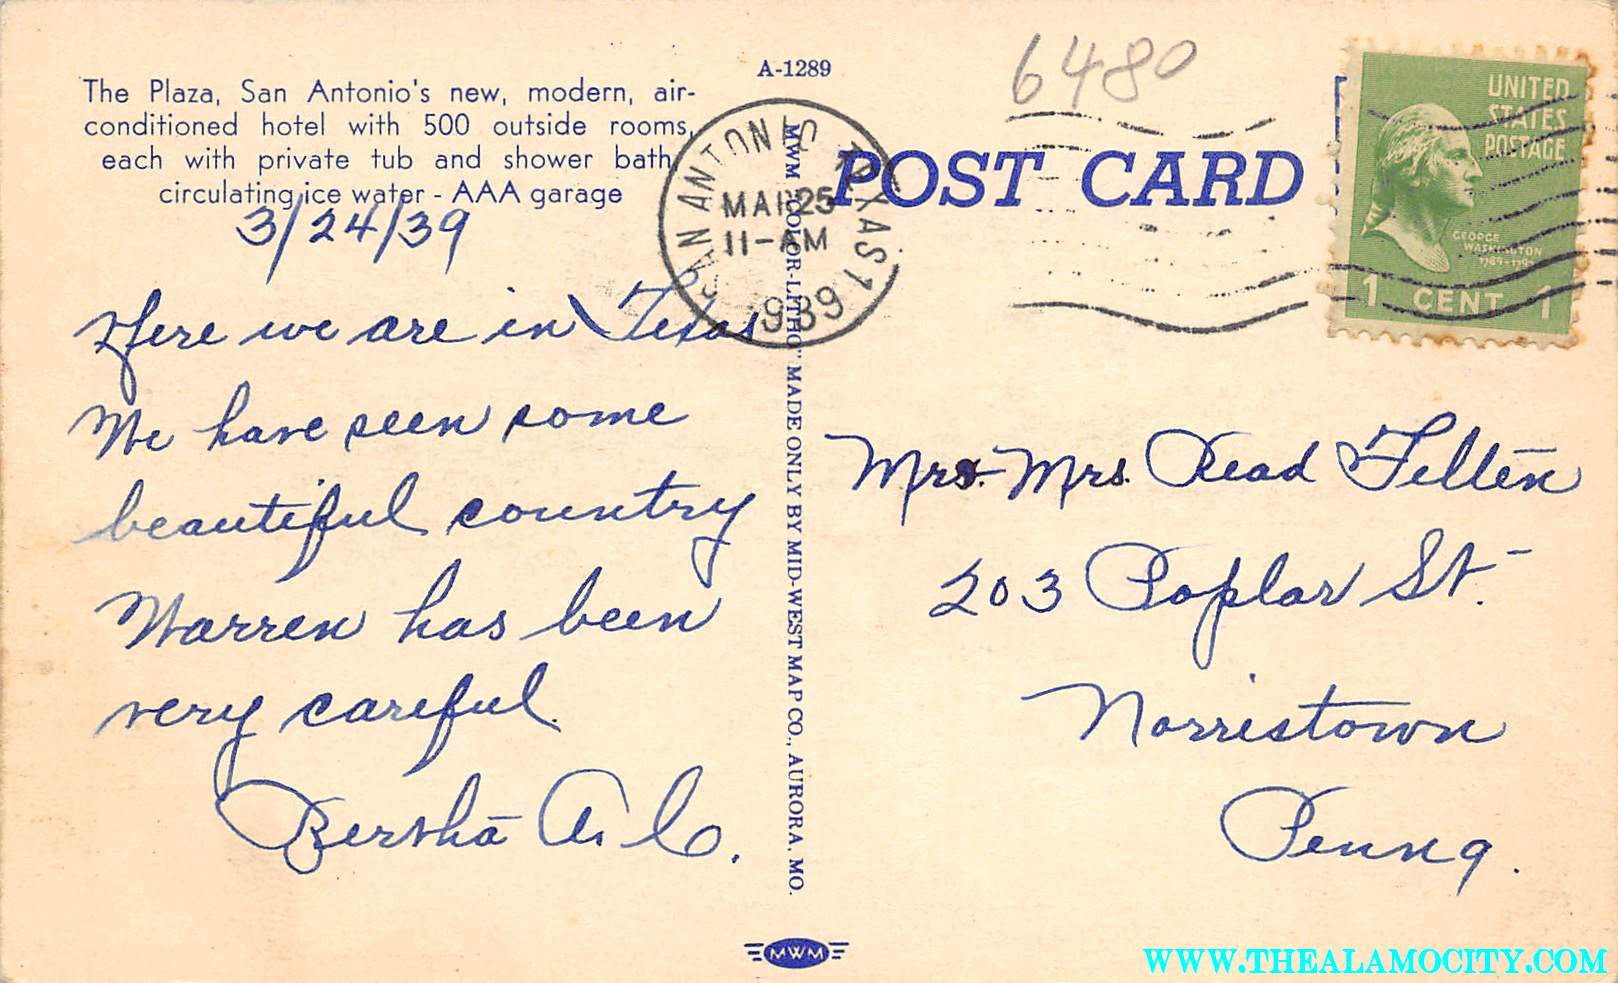 A-1289
6480
The Plaza, San Antonio's new, modern, air-
conditioned hotel with 500 outside rooms,
each with private tub and shower bath,
circulating ice water - AAA garage
3/24/39
Here we are in Texas
We have seen some
beautiful country
Warren has been
very careful.
Bertha A. C.
SAN ANTONIO TEXAS 1
MAR 25
11-AM
1939
MWM "COLOR-LITHO" MADE ONLY BY MID-WEST MAP CO., AURORA, MO.
POST CARD
UNITED
STATES
POSTAGE
GEORGE
WASHINGTON
1789-1797
1 CENT 1
Mrs. Read Felten
203 Poplar St.
Norristown
Penna.
MWM
WWW.THEALAMOCITY.COM